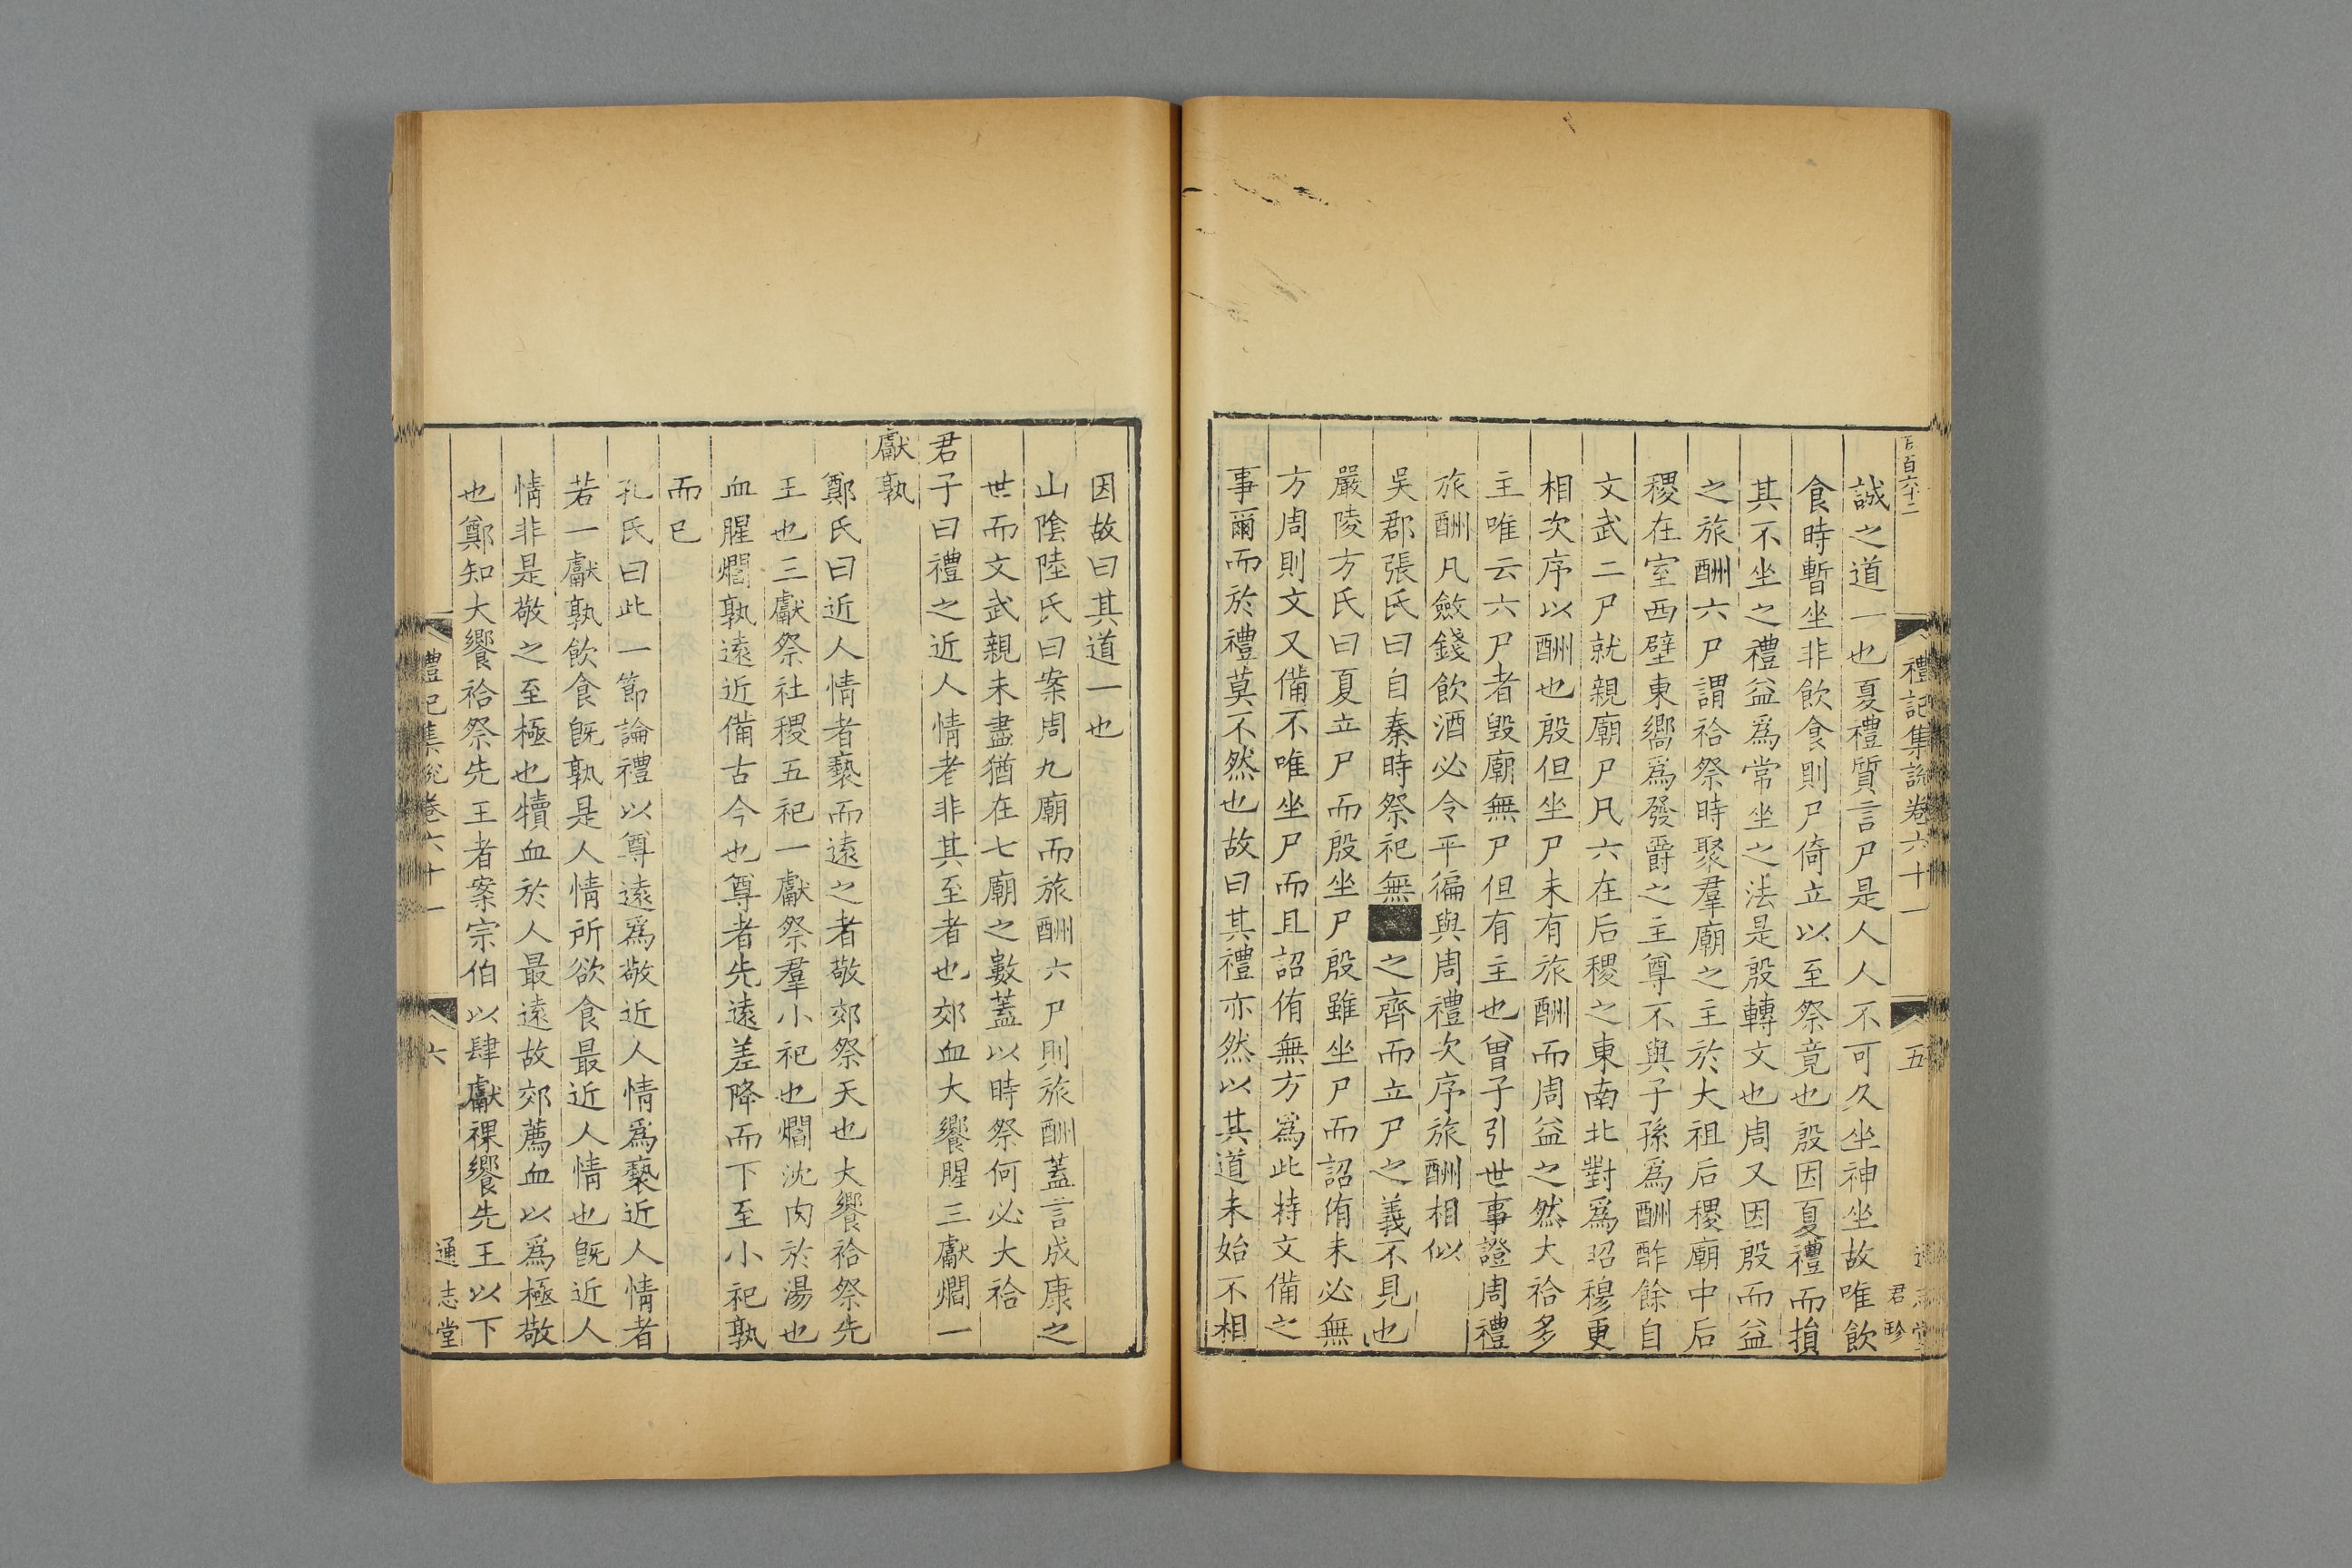 禮記集說卷六十一
五
君珍
誠之道一也夏禮質言尸是人人不可久坐神坐故唯飲
食時暫坐非飲食則尸倚立以至祭竟也殷因夏禮而損
其不坐之禮益爲常坐之法是殷轉文也周又因殷而益
之旅酬六尸謂祫祭時聚羣廟之主於大祖后稷廟中后
稷在室西壁東嚮爲發爵之主尊不與子孫爲酬酢餘自
文武二尸就親廟尸凡六在后稷之東南北對爲昭穆更
相次序以酬也殷但坐尸未有旅酬而周益之然大祫多
主唯云六尸者毀廟無尸但有主也曾子引世事證周禮
旅酬凡斂錢飲酒必令平徧與周禮次序旅酬相似
吳郡張氏曰自秦時祭祀無之齊而立尸之義不見也
嚴陵方氏曰夏立尸而殷坐尸殷雖坐尸而詔侑未必無
方周則文又備不唯坐尸而且詔侑無方爲此特文備之
事爾而於禮莫不然也故曰其禮亦然以其道未始不相
因故曰其道一也
山陰陸氏曰案周九廟而旅酬六尸則旅酬蓋言成康之
世而文武親未盡猶在七廟之數蓋以時祭何必大祫
君子曰禮之近人情者非其至者也郊血大饗腥三獻爓一
獻孰
鄭氏曰近人情者褻而遠之者敬郊祭天也大饗祫祭先
王也三獻祭社稷五祀一獻祭羣小祀也爓沈肉於湯也
血腥爓孰遠近備古今也尊者先遠差降而下至小祀孰
而已
孔氏曰此一節論禮以尊遠爲敬近人情爲褻近人情者
若一獻孰飲食旣孰是人情所欲食最近人情也旣近人
情非是敬之至極也犢血於人最遠故郊薦血以爲極敬
也鄭知大饗祫祭先王者案宗伯以肆獻祼饗先王以下
禮記集說卷六十一
六
通志堂